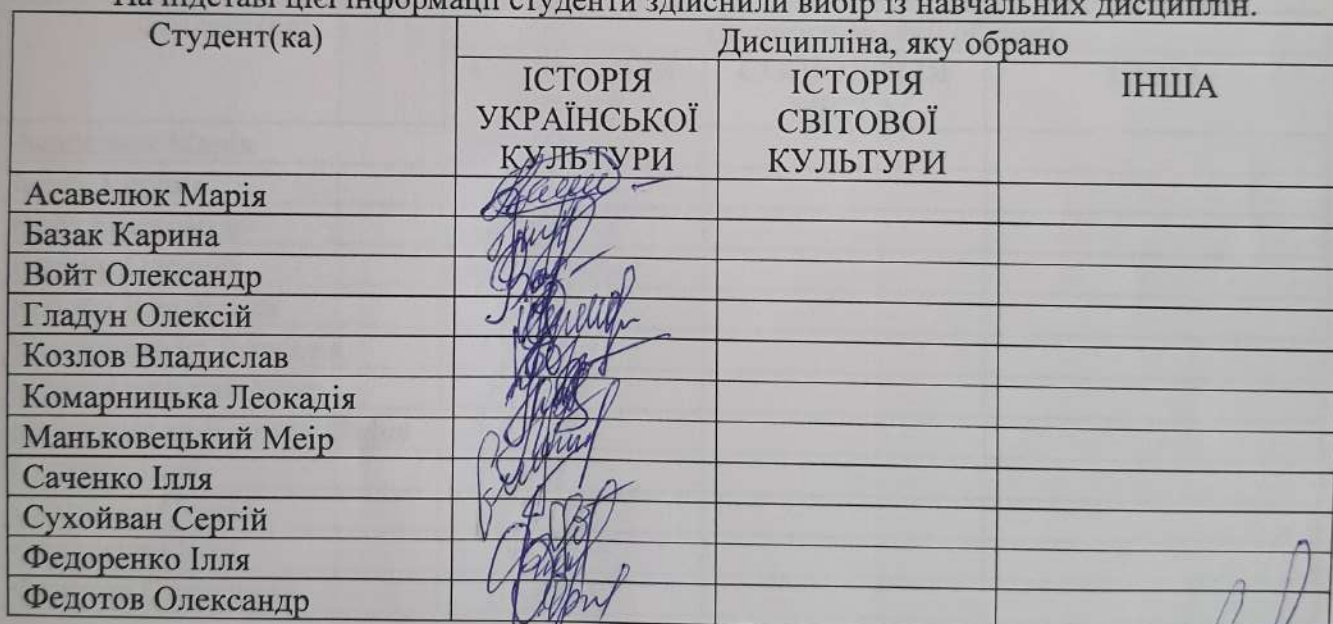 На підставі цієї інформації студенти здійснили вибір із навчальних дисциплін.
Студент(ка) Дисципліна, яку обрано
ІСТОРІЯ УКРАЇНСЬКОЇ КУЛЬТУРИ ІСТОРІЯ СВІТОВОЇ КУЛЬТУРИ ІНША
Асавелюк Марія
Базак Карина
Войт Олександр
Гладун Олексій
Козлов Владислав
Комарницька Леокадія
Маньковецький Меір
Саченко Ілля
Сухойван Сергій
Федоренко Ілля
Федотов Олександр